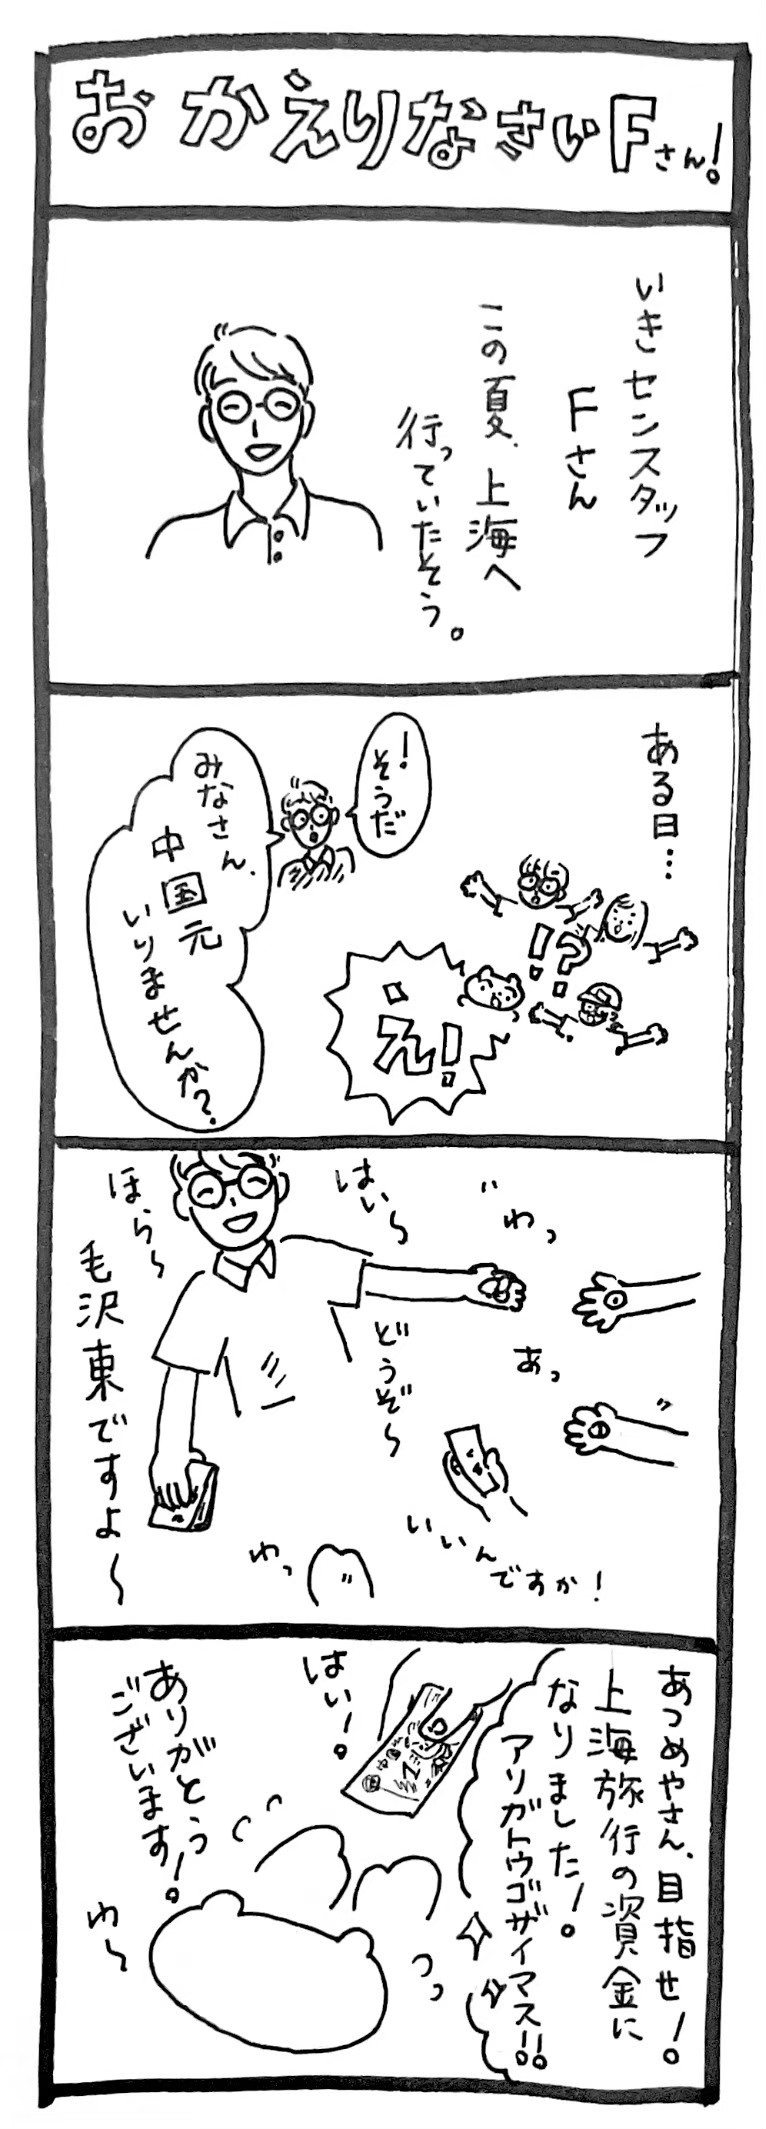 おかえりなさいFさん!
いきセンスタッフ
Fさん
この夏、上海へ
行っていたそう。
ある日…
!そうだ
みなさん、
中国元
いりませんか?
!?
え!
はい〜
ほら〜
毛沢東ですよ〜
どうぞ〜
わっ
あっ
いいんですか!
わっ
あつめやさん、目指せ!
上海旅行の資金に
なりました!
アリガトウゴザイマス!!
はい!
1
ありがとう
ございます!
わ〜